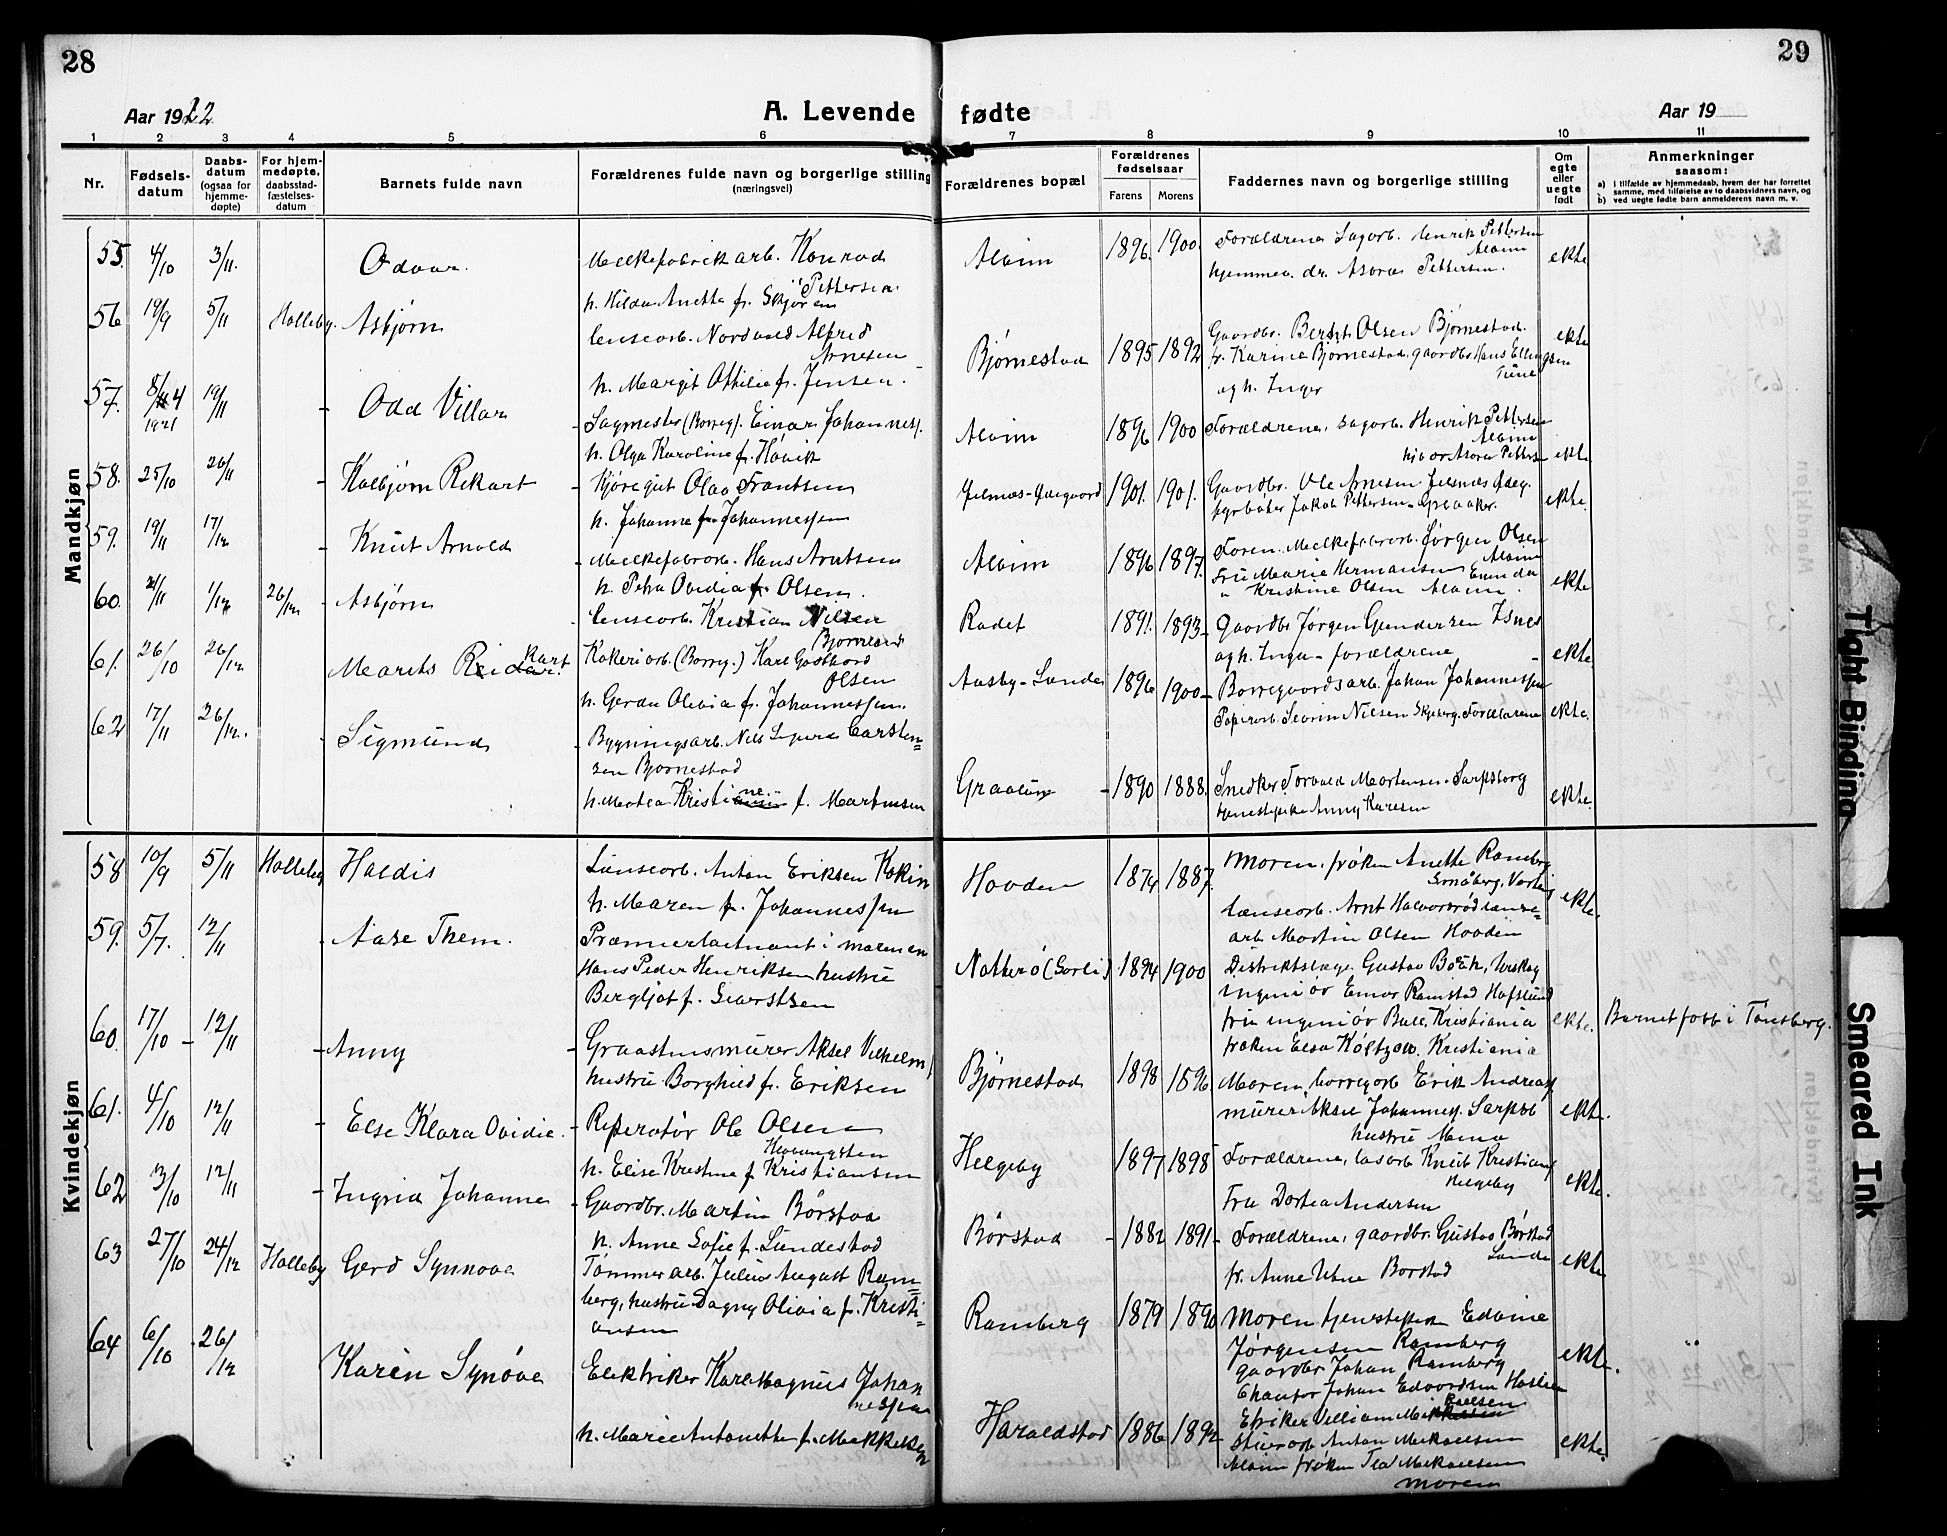 28
29
Aar 1922
A. Levende
fødte
Aar 19
1 2 3 4 5 6 7 8 9 10 11
Nr.
Fødsels-
datum
Daabs-
datum
(ogsaa for
hjemme-
døpte)
For hjem-
medøpte,
daabsstad-
fæstelses-
datum
Barnets fulde navn
Forældrenes fulde navn og borgerlige stilling
(næringsvei)
Forældrenes bopæl
Forældrenes
fødselsaar
Farens
Morens
Faddernes navn og borgerlige stilling
Om
egte
eller
uegte
født
Anmerkninger
saasom:
a) i tilfælde av hjemmedaab, hvem der har forrettet
samme, med tilføielse av to daabsvidners navn, og
b) ved uegte fødte barn anmelderens navn m. v.
Mandkjøn
55. 4/10 3/11. Odvar. Melkefabrikarb. Konrad
Pettersen.
h. Hilda Anetta f. Skjøren
Alvim 1896. 1900. Forældrene Sagarb. Henrik Pettersen
Alvim
ekte
56 19/9 5/11 Holleby. Asbjørn
Lenseorb. Nordvald Alfred
Arnesen
h. Margit Othilie f. Jensen.
Bjørnestad 1895 1892 Gaardbr. Bernt Olsen Bjørnestad.
fr. Karine Bjørnestad, gaardbr. Hans Ellingsen
Tune
og h. Inger
ekte
57. 4 1921 19/11 Odd Villar
Sagmester (Borreg). Einar Johanness.
h. Olga Karoline f. Høvik
Alvim 1896 1900 Forældrene, Sagarb. Henrik Pettersen
Alvim
ekte.
58. 25/10 26/11 Kolbjørn Rikart
Kjøregut Olav Frantsen
h. Johanne f. Johannessen
1901. 1901. Gaardbr. Ole Arnesen
fyrbøter Jakob Pettersen - Greaaker.
ekte.
59. 19/11 17/12 Knut Arnold
Melkefabrorb. Hans Arntsen
h. Petra Ovidia f. Olsen.
Alvim 1896 1897. Foren. Melkefabrorb. Jørgen Olsen
Alvim
Fru Marie Hermansen
" Kristine Olsen Alvim.
ekte
60. 2/11 1/12 26/12 Asbjørn
Lenseorb. Kristian Nilsen
Bjørnland
Rodet 1891. 1893 - Gaardbr Jørgen Gundersen Isnes
og h. Inga - forældrene
ekte.
61. 26/10 26/12 Marits Reidar. Kart
Kokeriarb. (Borreg.) Karl Gotthard
Olsen
h. Gerda Olivia f. Johannessen.
Aasby - Lande 1896 1900 - Borregaardsarb. Johan Johannessen
Papirorb. Severin Nilsen Skjeberg. Forældrene
ekte.
62 17/11 26/12. Sigmund
Bygningsarb. Nils Sigurd Carsten=
sen Bjørnestad
h. Matea Kristiane f. Martinsen
Graalum - 1890 1888. Snedker Torvald Mortensen - Sarpsborg
tjenestepike Anny Karlsen
ekte.
Kvindekjøn
58 10/9 5/11 Holleby Haldis
Lenseorb. Anton Eriksen Kokin
h. Maren f. Johannessen
Hovden 1874 1887. Moren, frøken Anette Ramberg
Småberg, Varteig
Lænseorb. Arnt Halvorsrød lænse-
arb Martin Olsen Hovden
ekte.
59. 5/7. 12/11 Aase Them.
Præmierløitnant i marinen
Hans Peder Henriksen hustru
Bergljot f. Sivertsen
Nøtterø (Sorli) 1894 1900 Distriktslæge Gustav Boeck,
ingeniør Einar Ramstad Hafslund
fru ingeniør Bull, Kristiania
frøken Elsa Koltzow. Kristiania
ekte. Barnet født i Tønsberg.
60. 17/10 - 12/11 Anny
Graastensmurer Aksel Vilhelm
hustru Borghild f. Eriksen
Bjørnestad 1898 1896. Moren, borregorb Erik Andreass
murer Aksel Johanness. Sarpsb
hustru Mina
ekte.
61. 4/10 12/11 Else Klara Ovidie.
Reperatør Ole Olsen
h. Elise Kristine f Kristiansen
Helgeby 1897 1898 Forældrene, Knut Kristians
Helgeby
Fru Dortea Andersen
ekte.
62 3/10 12/11 Ingrid Johanne
Gaardbr. Martin Børstad
h. Anne Sofie f. Sundestad
Børstad - 1882 1891 - Forældrene, gaardbr. Gustav Børstad
Lande
fr. Anne Utne Børstad
ekte
63 27/10 24/12 Holleby Gerd Synnøve
Tømmerarb. Julius August Ram=
berg, hustru Dagny Olivia f. Kristi-
ansen
Ramberg 1879 1890 Moren tjenestepiken Edvine
Jørgensen Ramberg
gaardbr Johan Ramberg
ekte.
64 6/10 - 26/12 Karen Synøve
Elektriker Karl Magnus Johan
nessen
h. Marie Antonette f. Mekkelsen
Haraldstad 1886 1892 Chauför Johan Edvardsen Haslien
Elriker Villiam
Anton Mekaelsen
Alvim frøken Mekaelsen
moren
ekte.
Tight Binding
Smeared Ink